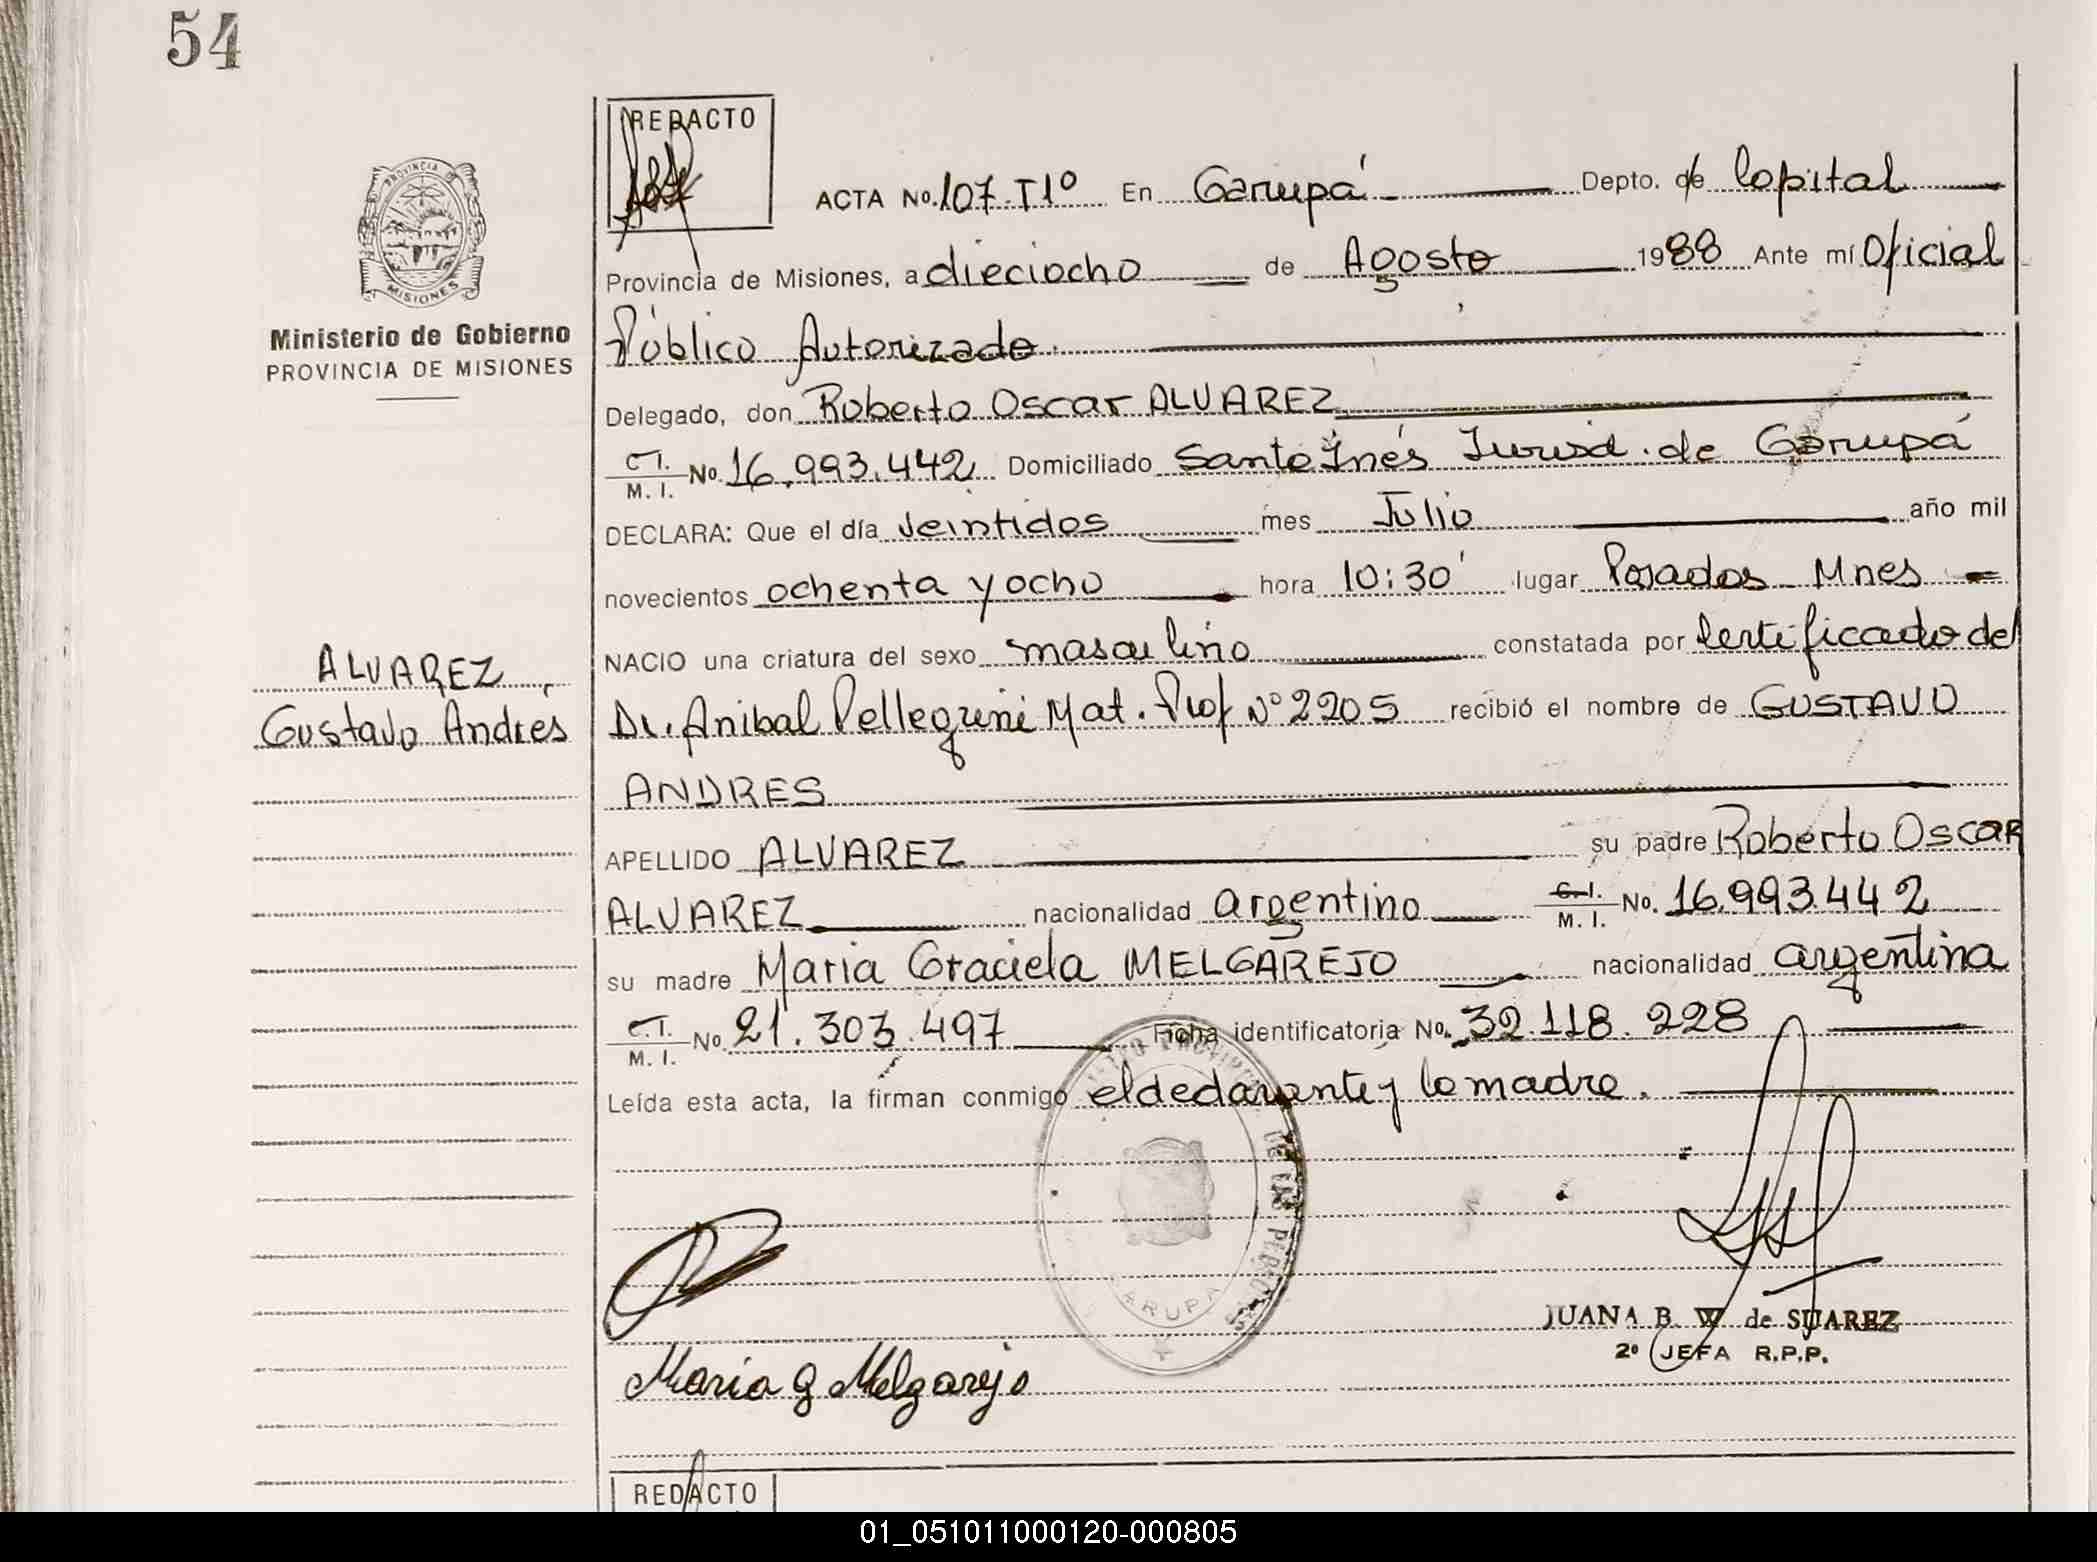 54
REDACTO
PROVINCIA DE
MISIONES
Ministerio de Gobierno
PROVINCIA DE MISIONES
ACTA No. 107-T1º En Garupá Depto. de Capital
Provincia de Misiones, a dieciocho de Agosto 1988 Ante mí Oficial
Público Autorizado.
Delegado, don Roberto Oscar ALVAREZ
C.I. M. I. No. 16.993.442 Domiciliado Santa Inés Jurisd. de Garupá
DECLARA: Que el día veintidos mes Julio año mil
novecientos ochenta y ocho hora 10:30' lugar Posadas Mnes
NACIO una criatura del sexo masculino constatada por Certificado del
Dr. Anibal Pellegrini Mat. Prof Nº 2205 recibió el nombre de GUSTAVO
ANDRES
ALVAREZ,
Gustavo Andres
APELLIDO ALVAREZ su padre Roberto Oscar
ALVAREZ nacionalidad argentino C.I. M. I. No. 16.993.442
su madre Maria Graciela MELGAREJO nacionalidad argentina
C.I. M. I. No. 21.303.497 Ficha identificatoria No. 32.118.228
Leída esta acta, la firman conmigo el declarante y la madre.
DE LAS PERSONAS
GARUPA
JUANA B. W. de SUAREZ
2º JEFA R.P.P.
María G Melgarejo
REDACTO
01_051011000120-000805